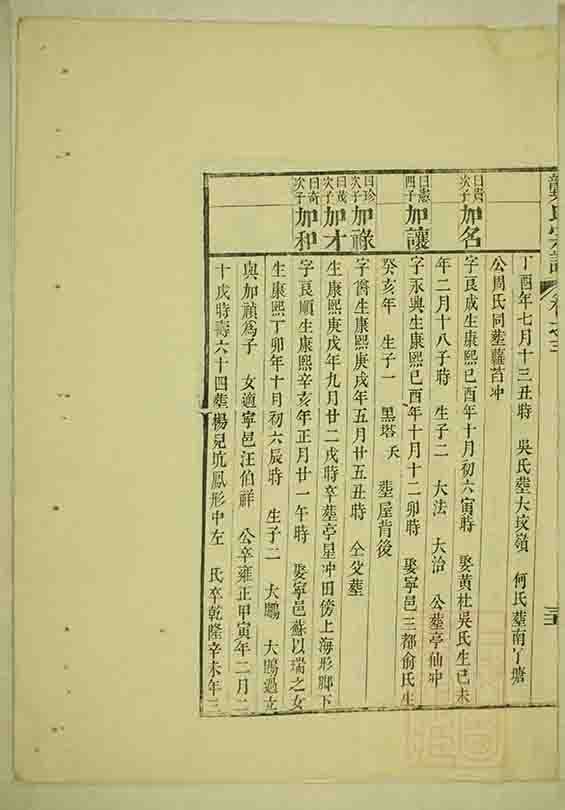 氏宗譜 卷之三
丁酉年七月十三丑時 吳氏塟大坟嶺 何氏塟南丫塘
公周氏同塟蘿苔冲
曰貴次子 加名 字良成生康熙己酉年十月初六寅時 娶黃杜吳氏生己未
年二月十八子時 生子二 大法 大治 公塟亭仙冲
曰憲四子 加讓 字永興生康熙己酉年十月十二卯時 娶寧邑三都俞氏生
癸亥年 生子一 黑塔 夭 塟屋背後
曰珍次子 加祿 字喬生康熙庚戌年五月廿五丑時 仝父塟
曰茂次子 加才 生康熙庚戌年九月廿二戌時卒塟亭星冲田傍上海形脚下
曰奇次子 加和 字良順生康熙辛亥年正月廿一午時 娶寧邑蘇以瑞之女
生康熙丁卯年十月初六辰時 生子二 大鵬 大鵾過立
與加禎爲子 女適寧邑汪伯祥 公卒雍正甲寅年二月二
十戌時壽六十四塟楊見坑鳳形中左 氏卒乾隆辛未年三